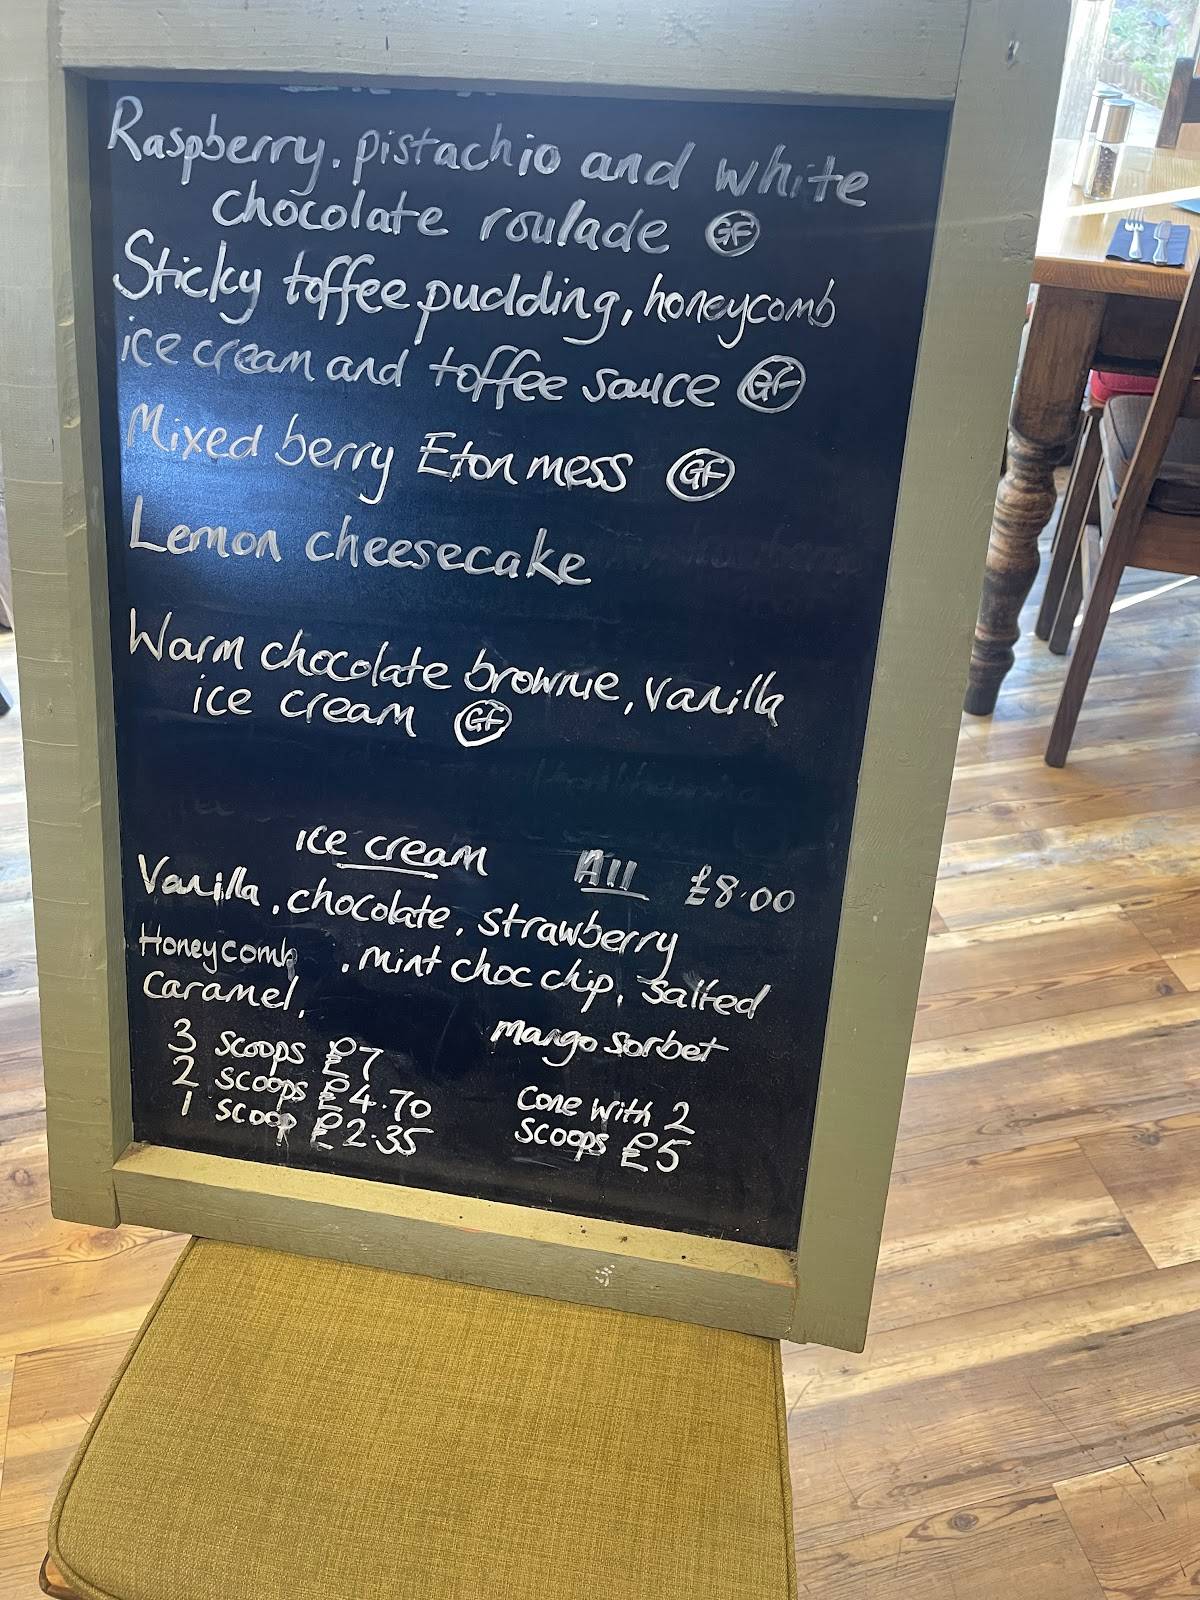 Raspberry, pistachio and white
chocolate roulade GF
Sticky toffee pudding, honeycomb
ice cream and toffee sauce GF
Mixed berry Eton mess GF
Lemon cheesecake
Warm chocolate brownie, vanilla
ice cream GF
ice cream All £8.00
Vanilla, chocolate, strawberry
Honeycomb , mint choc chip, salted
Caramel,
mango sorbet
3 scoops £7
2 scoops £4.70
1 scoop £2.35
cone with 2
scoops £5